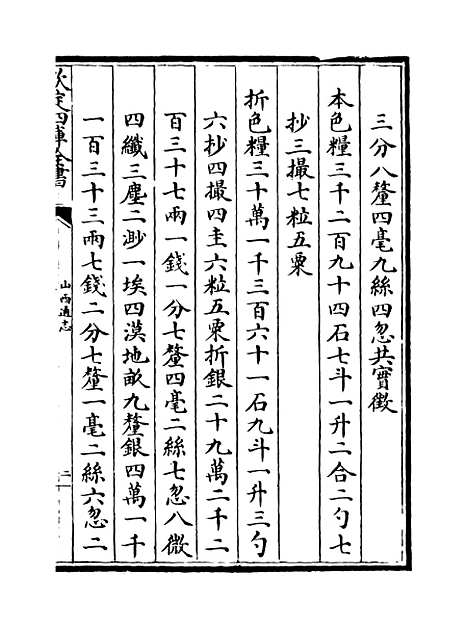 三分八釐四毫九絲四忽共實徵
本色糧三千二百九十四石七斗一升二合二勺七
抄三撮七粒五粟
折色糧三十萬一千三百六十一石九斗一升三勺
六抄四撮四圭六粒五粟折銀二十九萬二千二
百三十七兩一錢一分七釐四毫二絲七忽八微
四纖三塵二渺一埃四漠地畝九釐銀四萬一千
一百三十三兩七錢二分七釐一毫二絲六忽二
欽定四庫全書
山西通志
二